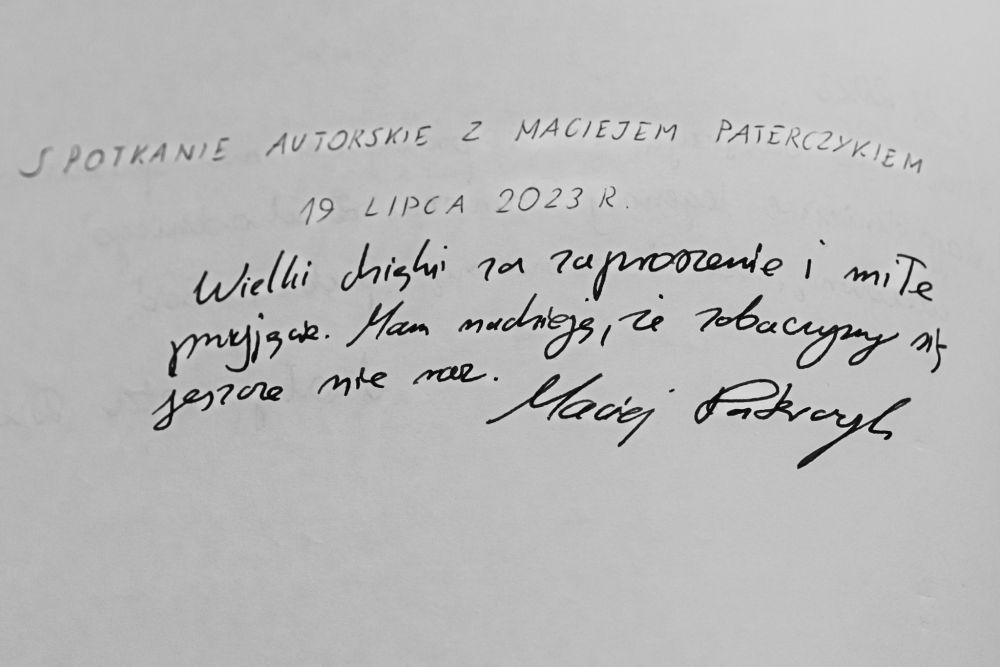 SPOTKANIE AUTORSKIE Z MACIEJEM PATERCZYKIEM
19 LIPCA 2023 R.
Wielki dzięki za zaproszenie i miłe
przyjęcie. Mam nadzieję, że zobaczymy się
jeszcze nie raz.
Maciej Paterczyk